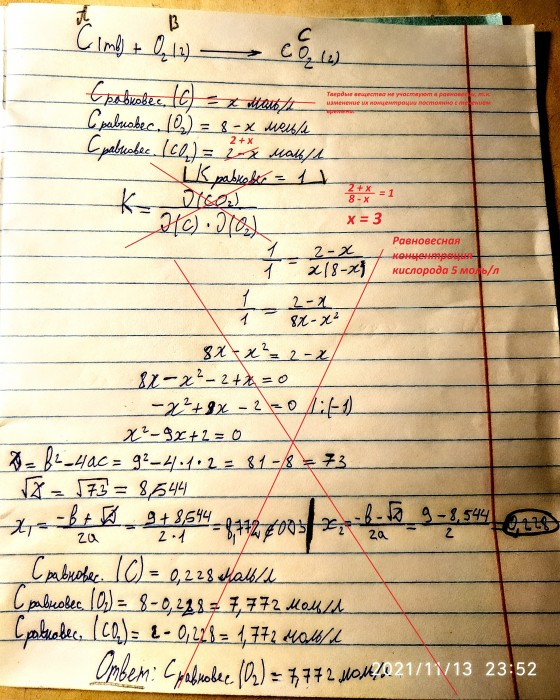 A B C
C(тв) + O₂(г) ⟶ CO₂(г)
Cравновес.(C) = x моль/л
Твердые вещества не участвуют в равновесии, т.к. изменение их концентрации постоянно с течением времени.
Cравновес.(O₂) = 8 - x моль/л
2 + x
Cравновес.(CO₂) = 2 - x моль/л
Kравновес = 1
2 + x / 8 - x = 1
x = 3
K = J(CO₂) / J(C) · J(O₂)
Равновесная
концентрация
кислорода 5 моль/л
1/1 = 2-x / x(8-x)
1/1 = 2-x / 8x-x²
8x - x² = 2 - x
8x - x² - 2 + x = 0
-x² + 9x - 2 = 0 /:(-1)
x² - 9x + 2 = 0
D = b² - 4ac = 9² - 4·1·2 = 81 - 8 = 73
√D = √73 = 8,544
x₁ = -b + √D / 2a = 9 + 8,544 / 2·1 = 8,772 | x₂ = -b - √D / 2a = 9 - 8,544 / 2 = 0,228
Cравновес.(C) = 0,228 моль/л
Cравновес.(O₂) = 8 - 0,228 = 7,772 моль/л
Cравновес.(CO₂) = 2 - 0,228 = 1,772 моль/л
Ответ: Cравновес.(O₂) = 7,772 моль/л
2021/11/13 23:52